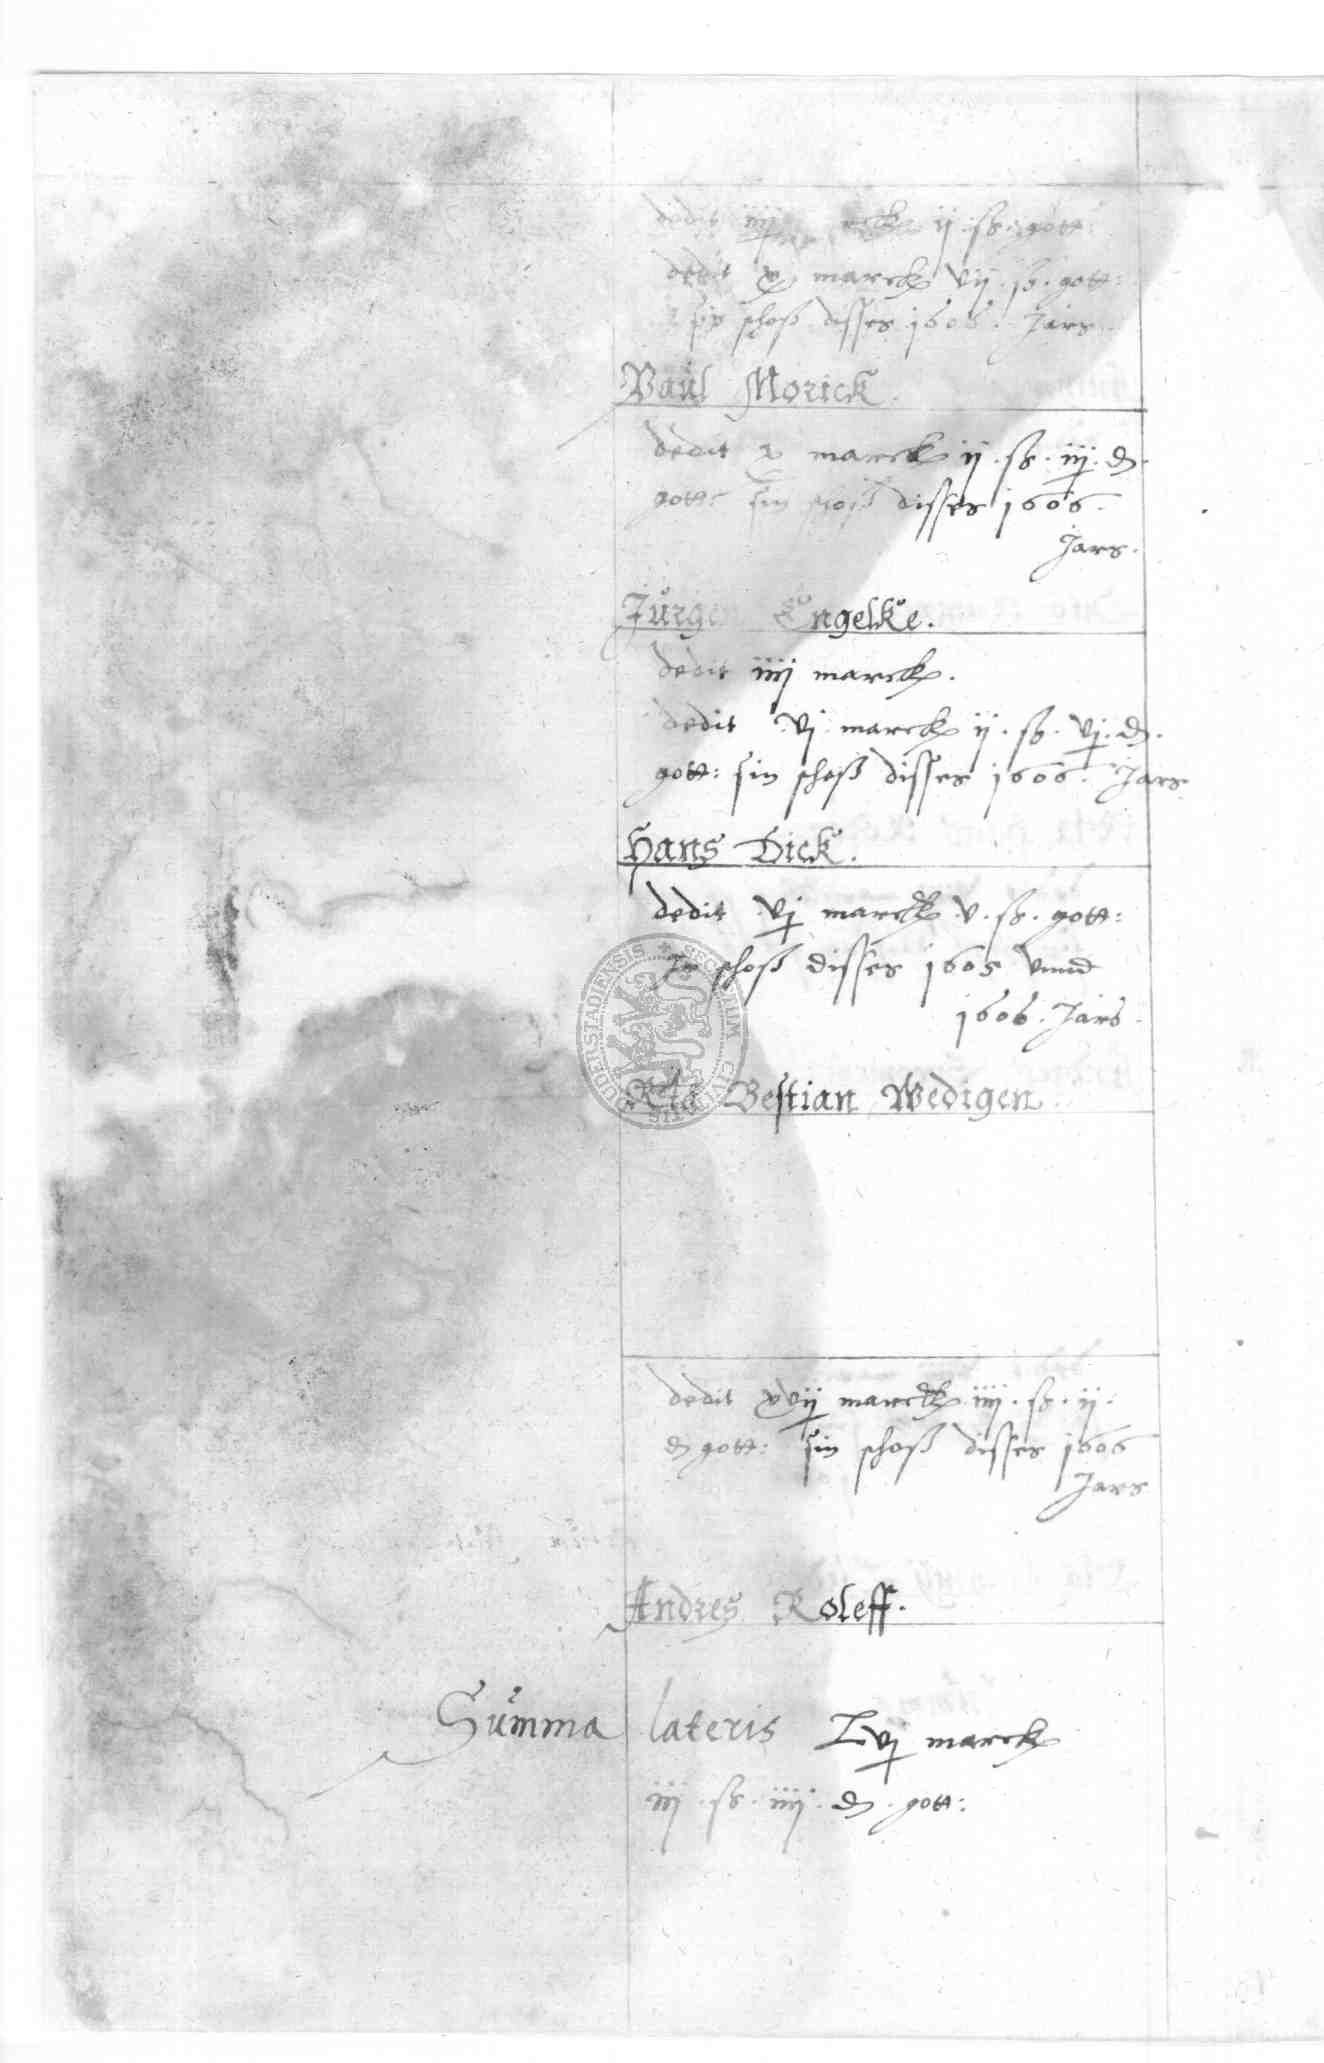 dedit iiij ij . ß . gott:
dedit x marck vij . ß . gott:
schoß disses 1606 . Jars
Paul Morick .
dedit x marck ij . ß . iij . d .
gott: sin schoß disses 1606 .
Jars .
Jurgen Engelke .
dedit iiij marck .
dedit vj marck ij . ß . vj . d .
gott: sin schoß disses 1606 . Jars
Hans Dick .
dedit vj marck v . ß . gott:
Jr schoß disses 1605 vnnd
1606 . Jars .
SECRETUM CIVITATIS DUDERSTADIENSIS
Rta Bestian Wedigen
dedit xvij marck iiij . ß . ij .
d gott: sin schoß disses 1606
Jars
Andres Roleff .
Summa lateris Lvj marck
iij . ß . iiij . d . gott: